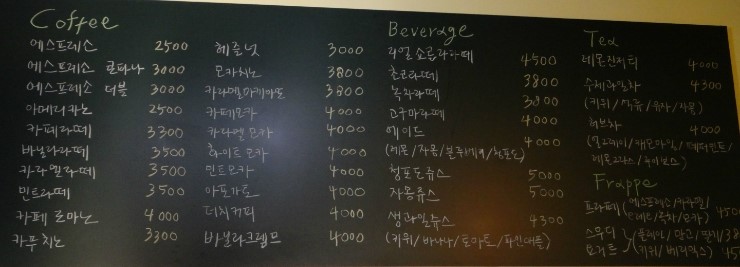 Coffee
에스프레소 2500
에스프레소 콘파나 3000
에스프레소 더블 3000
아메리카노 2500
카페라떼 3300
바닐라라떼 3500
카라멜라떼 3500
민트라떼 3500
카페 로마노 4000
카푸치노 3300
헤즐넛 3000
모카치노 3800
카라멜마키아또 3800
카페모카 4000
카라멜 모카 4000
화이트 모카 4000
민트모카 4000
아포가토 4000
더치커피 4000
바닐라크림프 4000
Beverage
리얼 쇼콜라라떼 4500
초코라떼 3800
녹차라떼 3800
고구마라떼 4000
에이드 4000
(레몬/자몽/블루베리/청포도)
청포도쥬스 5000
자몽쥬스 5000
생과일쥬스 4300
(키위/바나나/토마토/파인애플)
Tea
레몬진저티 4000
수제과일차 4300
(키위/석류/유자/자몽)
허브차 4000
(얼그레이/캐모마일/페퍼민트/
레몬그라스/루이보스)
Frappe
프라페 (에스프레소/카라멜/ 450
민트/녹차/모카)
스무디 (플레인/망고/딸기/ 38
요거트 키위/베리믹스) 45